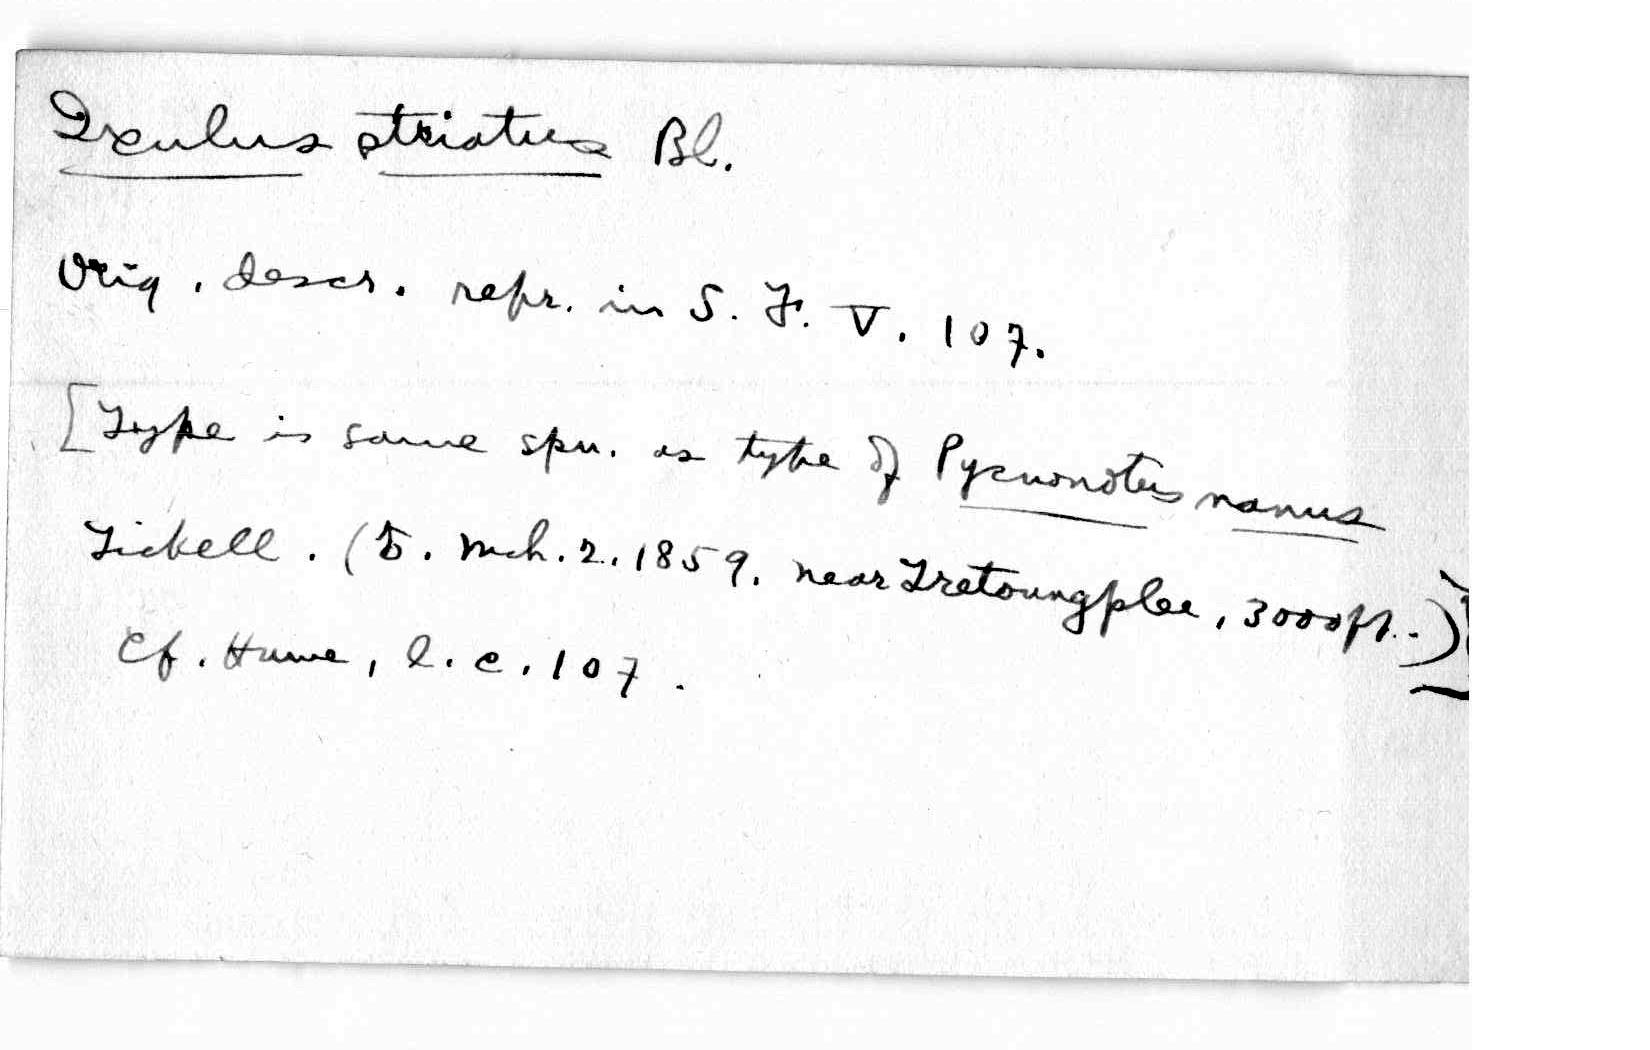 Ixulus striatus Bl.
Orig. descr. repr. in S. F. V. 107.
[Type is same spn. as type of Pycnonotus nanus
Tickell. (♂. Mch. 2. 1859. near Tretoungplee, 3000 ft.)]
Cf. Hume, l. c. 107.